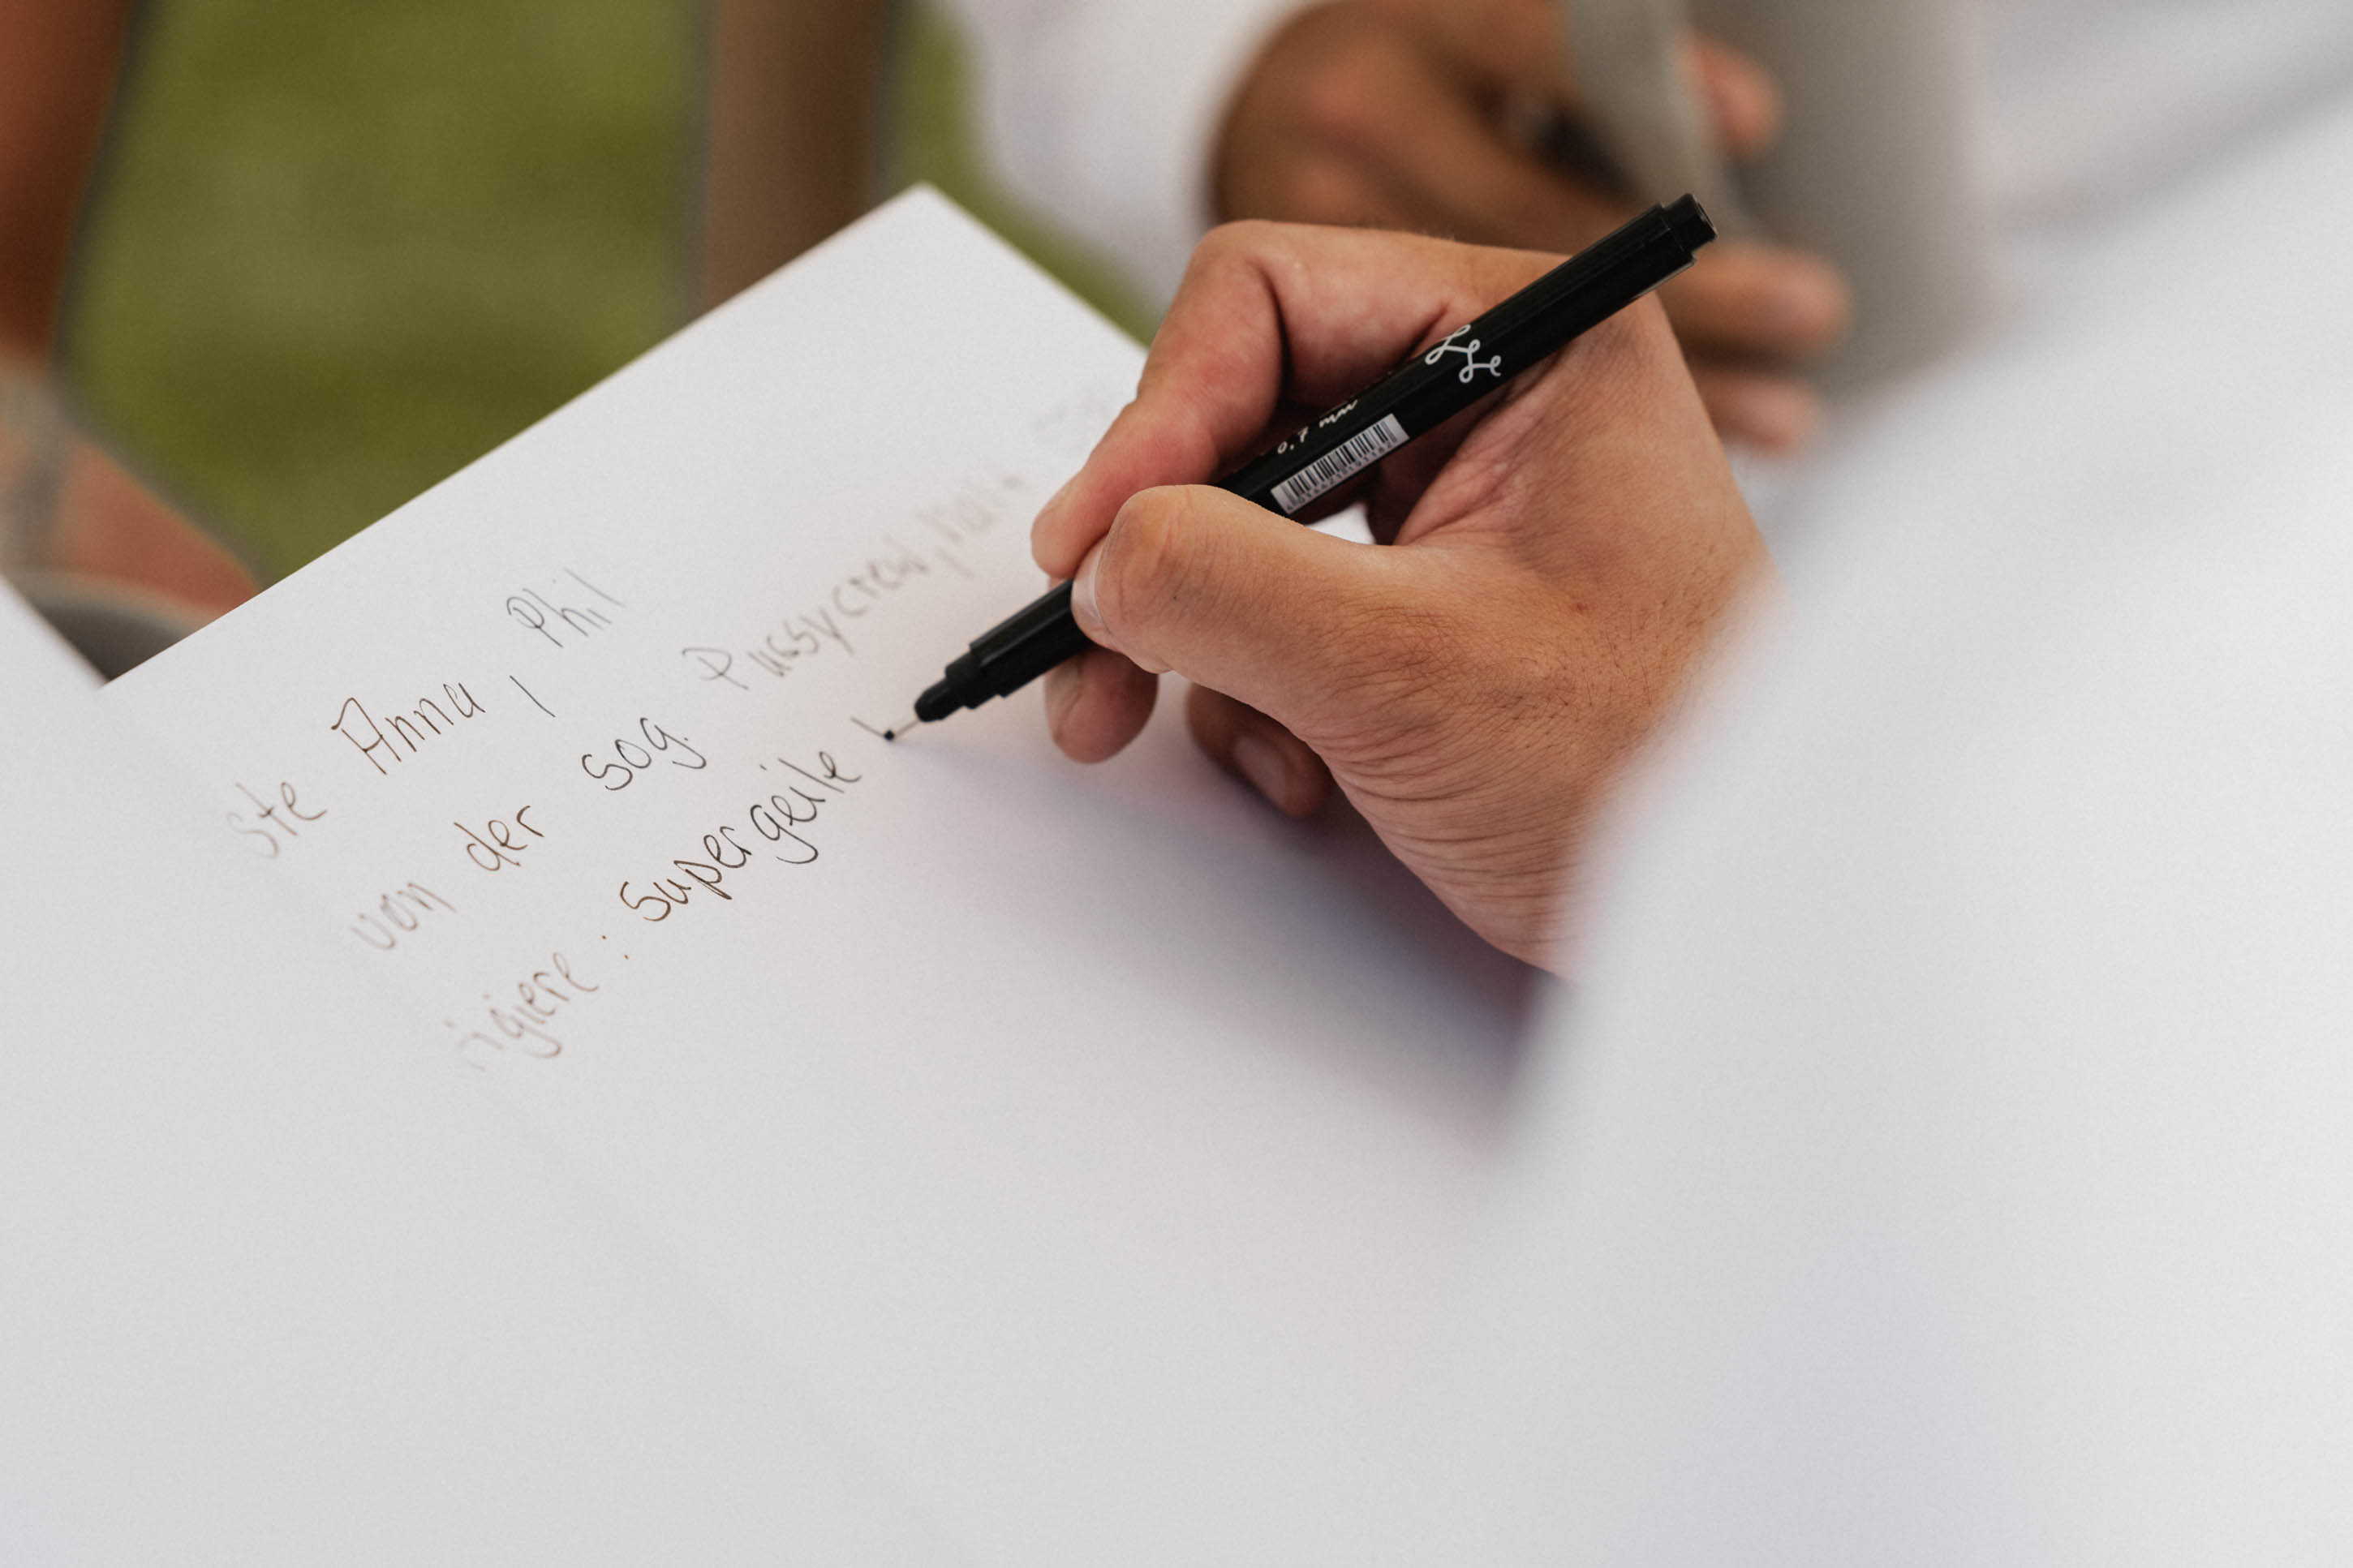 ste Anna, Phil
von der sog. Pussycrew,
igiere: Supergeile
0.7 mm